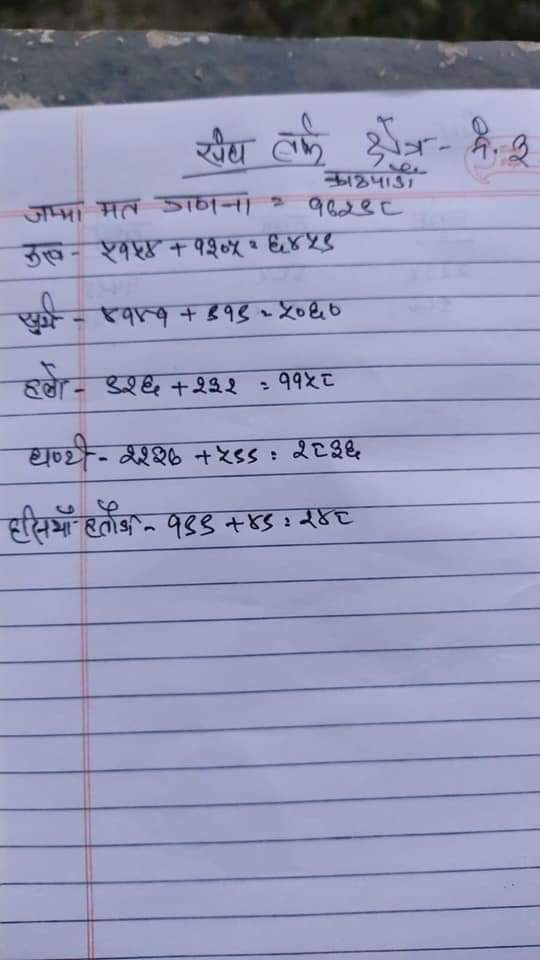 संघ तर्फ क्षेत्र - नं. ३
काठमाडौं
जम्मा मत गणना = १७२९८
रुख - ५१५४ + १३०५ = ६४५९
सुर्य - ४१४१ + ९१९ = ५०६०
हलो - ९२६ + २३२ = ११५८
घण्टी - २२३७ + ५९९ = २८३६
हसियाँ हतौडा - १९९ + ४९ = २४८